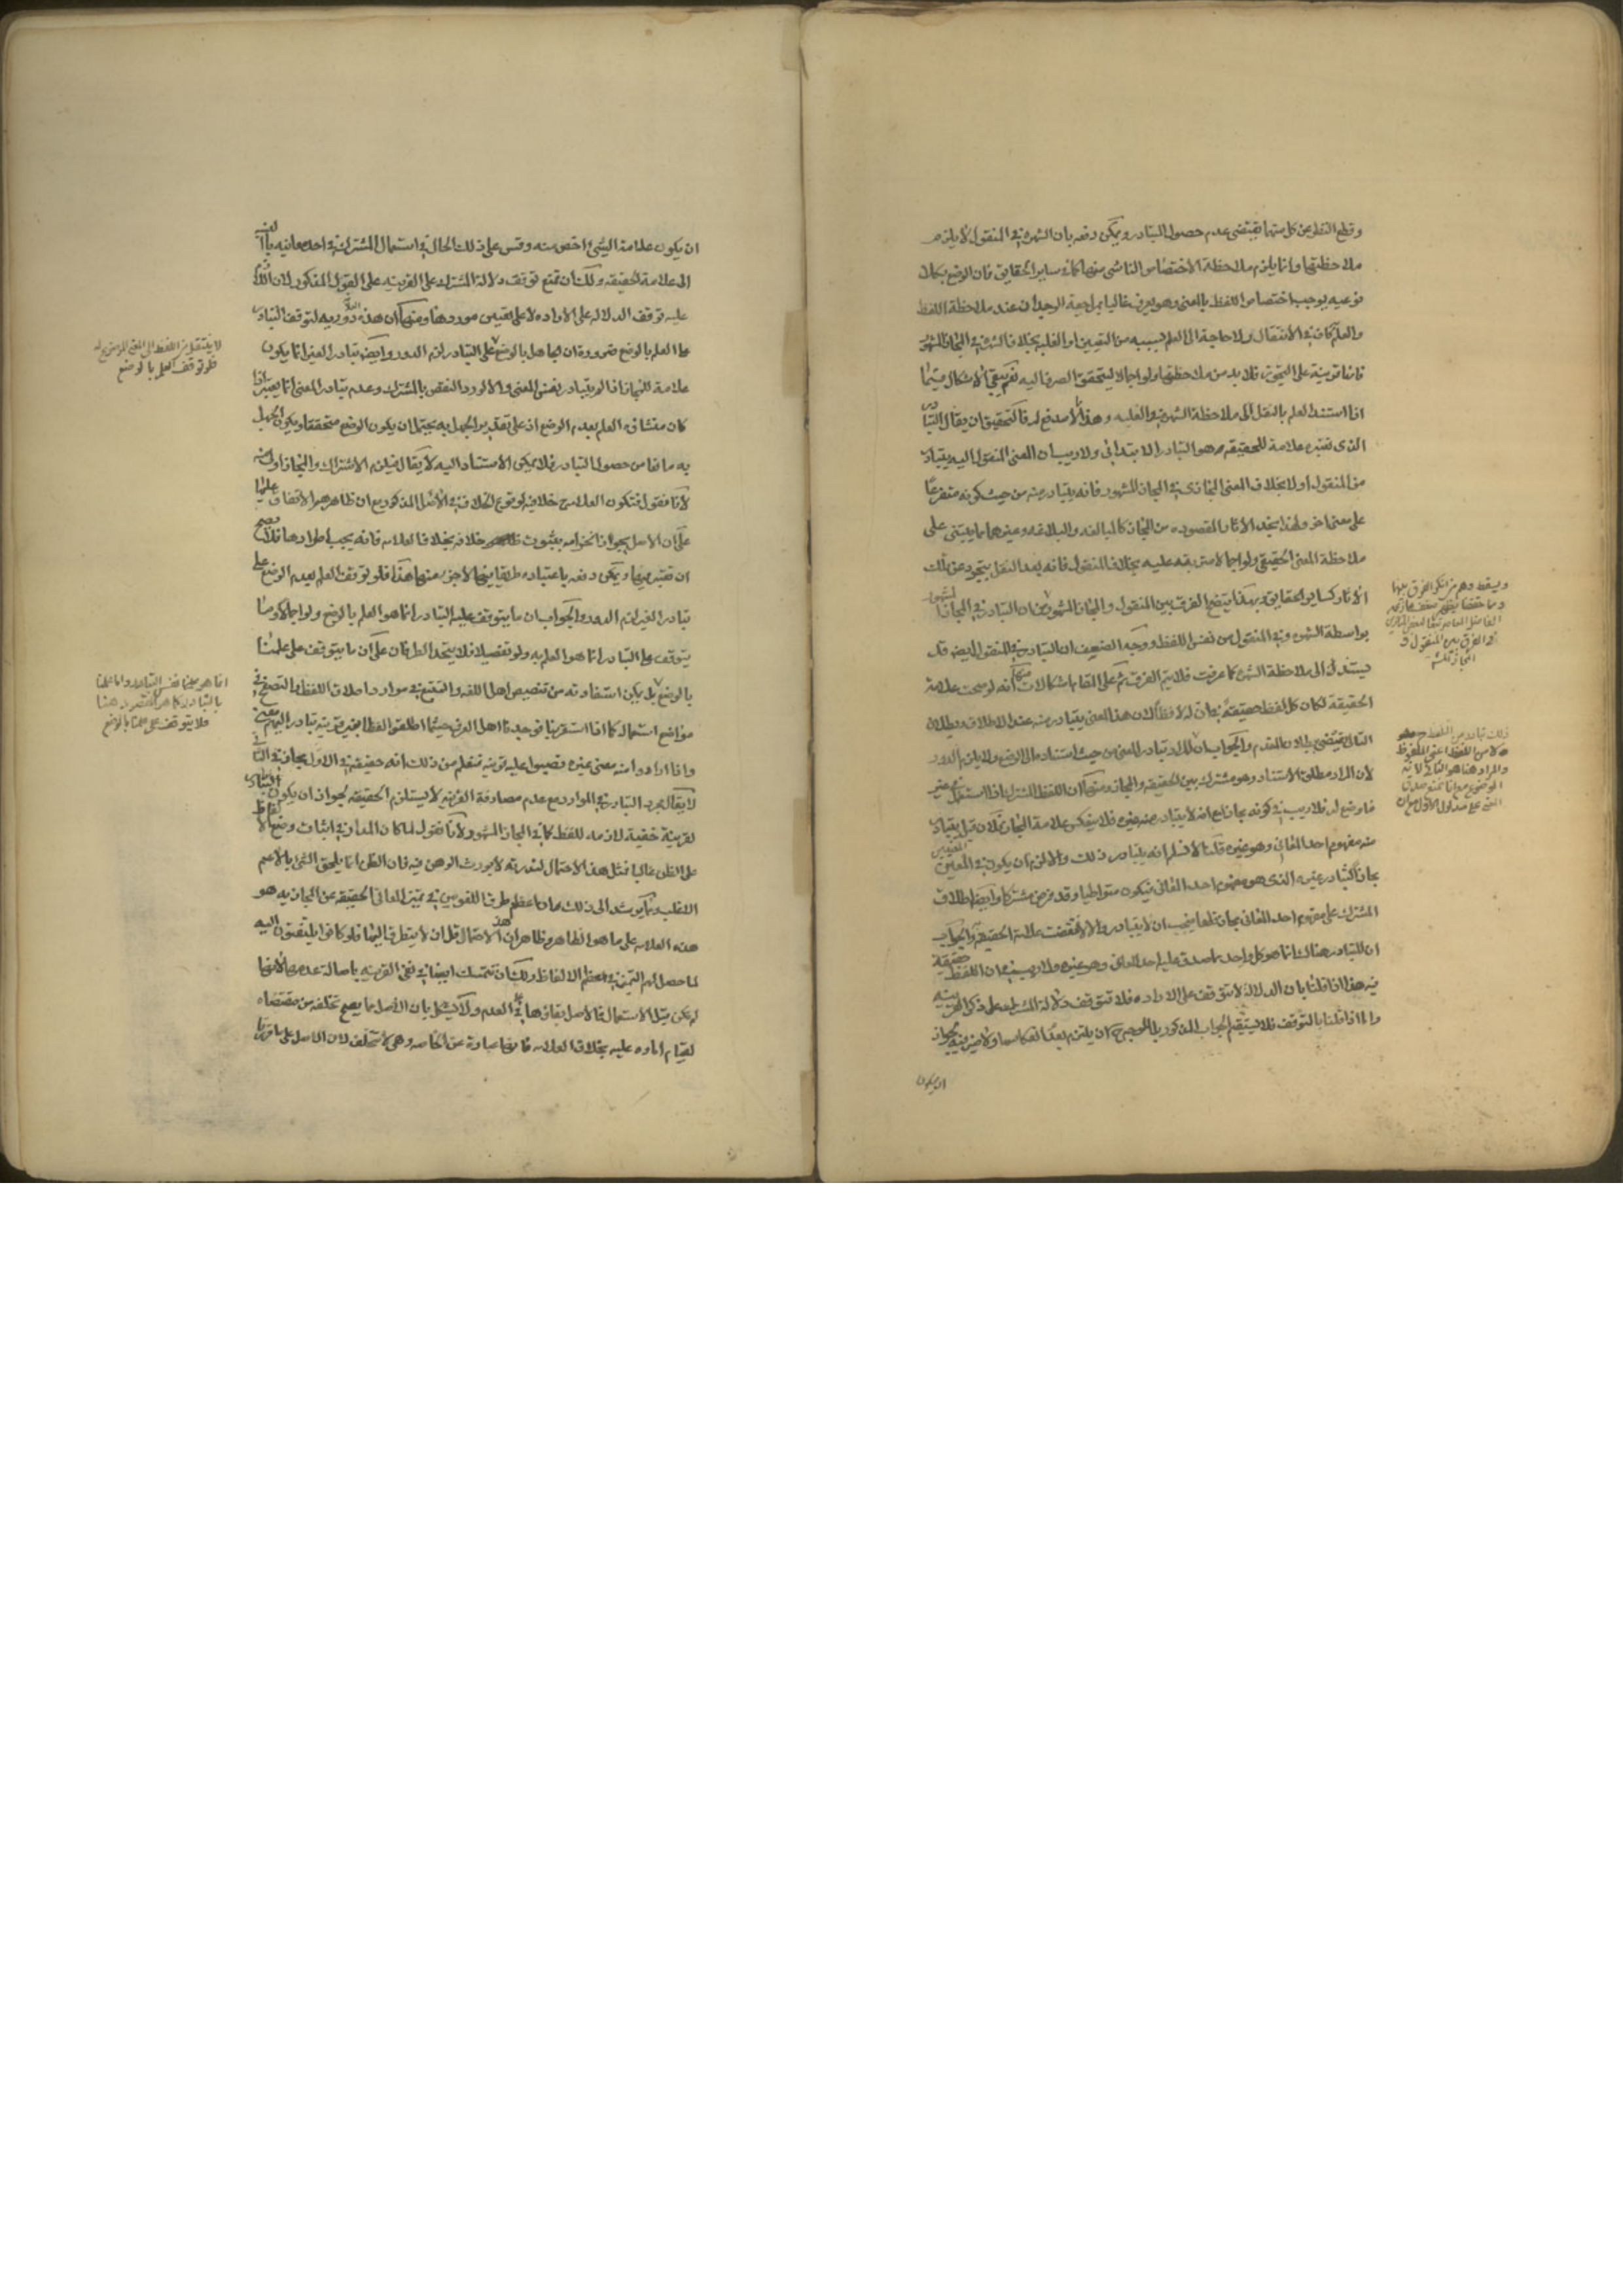 وقطع النظر عن كل منهما يقتضى عدم حصول التبادر ويمكن دفعه بان الشهرة فى المنقول لا يلزم
ملاحظتها وانما يلزم ملاحظة الاختصاص الناشى منها كما فى ساير الحقايق فان الوضع بكلا
نوعيه يوجب اختصاص اللفظ بالمعنى وهو يعرف غالبا بمراجعة الوجدان عند ملاحظة اللفظ
والعلم كاف فى الانتقال ولا حاجة الى العلم بسببه من التعيين او الغلبة بخلاف الشهرة فى المجاز المشهور
فانها قرينة على التجوز فلا بد من ملاحظتها ولو اجمالا ليتحقق الصرف اليه نعم يبقى الاشكال فيما
اذا استند العلم بالنقل الى ملاحظة الشهرة والغلبة وهذا لا مدفع له فالتحقيق ان يقال التبادر
الذى نعتبره علامة للحقيقة هو التبادر الابتدائى ولا ريب ان المعنى المنقول اليه يتبادر
من المنقول اولا بخلاف المعنى المجازى فى المجاز المشهور فانه يتبادر منه من حيث كونه متفرعا
على معنى اخر ولهذا يفيد الاثار المقصودة من المجاز كالمبالغة والبلاغة وغيرهما مما يبتنى على
ملاحظة المعنى الحقيقى ولو اجمالا مترتبة عليه بخلاف المنقول فانه بعد النقل يتجرد عن تلك
الاثار كساير الحقايق وبهذا يتضح الفرق بين المنقول والمجاز المشهور بان التبادر فى المجاز المشهور
بواسطة الشهرة وفى المنقول من نفس اللفظ ووجه الضعف ان التبادر فى المنقول ايضا قد
يستند الى ملاحظة الشهرة كما عرفت فلا يتم الفرق ثم على المقام اشكالات منها انه لو صحت علامة
الحقيقة لكان كل لفظ حقيقة فى ان له لافظا لان هذا المعنى يتبادر منه عند الاطلاق وبطلان
التالى يقتضى بطلان المقدم والجواب ان المراد تبادر المعنى من حيث استناده الى الوضع ولا يلزم الدور
لان المراد مطلق الاستناد وهو مشترك بين الحقيقة والمجاز ومنها ان اللفظ المشترك اذا استعمل فى غير
ما وضع له فلا ريب فى كونه مجازا مع انه لا يتبادر منه غيره فلا ينعكس علامة المجاز فان قيل يتبادر
منه مفهوم احد المعانى وهو غيره قلنا لا نسلم انه يتبادر ذلك والا لزم ان يكون فى المعينين
مجازا لتبادر غيره الذى هو مفهوم احد المعانى فيكون متواطيا وقد فرض مشتركا وايضا اطلاق
المشترك على مفهوم احد المعانى مجاز قطعا فيجب ان لا يتبادر والا لانتقضت علامة الحقيقة والجواب
ان المتبادر هناك انما هو كل واحد ما صدق عليه احد المعانى وهو غيره ولا ريب فى ان اللفظ حقيقة
فيه هذا اذا قلنا بان الدلالة لا تتوقف على الارادة فلا تتوقف دلالة المشترك على ذكر القرينة
واما اذا قلنا بالتوقف فلا يستقيم الجواب المذكور بل الموجه ح ان يلتزم بعدم انعكاسها ولا ضير فيه لجواز
ان يكون
ويسقط وهم من انكر الفرق بينهما
الفاضل المعاصر تبعا لبعض
فى الفرق بين المنقول و
المجاز المشهور
ذلك تبادر من اللفظ ح
لا من اللفظ اعنى الملفوظ
والمراد هنا هو الثانى لانه
الموضوع
ان يكون علامة الشئ اخص منه وقس على ذلك الحال فى استعمال المشترك فى احد معانيه بالنسبة
الى علامة الحقيقة ولك ان تمنع توقف دلالة المشترك على القرينة على القول المذكور لان اللازم
عليه توقف الدلالة على الارادة لا على تعيين موردها ومنها ان هذه العلامة دورية لتوقف التبادر
على العلم بالوضع ضرورة ان الجاهل بالوضع فلو توقف العلم بالوضع على التبادر لزم الدور وايضا تبادر الغير انما يكون
علامة للمجاز اذا لم يتبادر نفس المعنى والا لورد النقض بالمشترك وعدم تبادر المعنى انما يعتبر اذا
كان منشاؤه العلم بعدم الوضع اذ على تقدير الجهل به يحتمل ان يكون الوضع متحققا ويكون الجهل
به مانعا من حصول التبادر فلا يمكن الاستناد اليه لا يقال فيلزم الاشتراك والمجاز اولى منه
لانا نقول فتكون العلامة ح خلافية لوقوع الخلاف فى الاصل المذكور مع ان ظاهرهم الاتفاق عليها
على ان الاصل يجوز انخرامه بثبوت خلافه بخلاف العلامة فانه يجب اطرادها فلا يصح
ان تعتبر فيها ويمكن دفعه باعتباره طريقا فيها لا جزء منها هكذا فلو توقف العلم بعدم الوضع على
تبادر الغير لزم الدور والجواب ان ما يتوقف عليه التبادر انما هو العلم بالوضع ولو اجمالا وما
يتوقف على التبادر انما هو العلم به ولو تفصيلا فلا يتحد الطرفان على ان ما يتوقف على علمنا
بالوضع بل يمكن استفادته من تنصيص اهل اللغة والتتبع فى موارد اطلاق اللفظ والتصفح فى
مواضع استعماله كما اذا استقرينا فوجدنا اهل العرف حيثما اطلقوا لفظا بغير قرينة تبادر اليهم معنى
واذا ارادوا منه معنى غيره نصبوا عليه قرينة فنعلم من ذلك انه حقيقة فى الاول مجاز فى الثانى
لا يقال مجرد التبادر فى الموارد مع عدم مصادفة القرينة لا يستلزم الحقيقة لجواز ان يكون التبادر
لقرينة خفية لازمة للفظ كما فى المجاز المشهور لانا نقول لما كان المدار فى اثبات وضع الالفاظ
على الظن غالبا فمثل هذا الاحتمال لندرته لا يورث الوهن فيه فان الظن انما يلحق الشئ بالاعم
الاغلب ومما يرشد الى ذلك ان اعظم طرق اللغويين فى تميز المعانى الحقيقة عن المجازية هو
هذه العلامة على ما هو الظاهر وظاهر ان هذا الاحتمال قل ان لا يتطرق اليها فلو كانوا يلتفتون اليه
لما حصل لهم التميز فى معظم الالفاظ ولك ان تتمسك ايضا فى نفى القرينة باصالة عدمها لانها
لم تكن قبل الاستعمال فالاصل بقاؤها على العدم ولا يشكل بان الاصل مما يصح تخلفه عن مقتضاه
لقيام امارة عليه بخلاف العلامة فانها عبارة عن الخاصة وهى لا تتخلف لان الاصل على ما قررنا
لا ينتقل من اللفظ الى المعنى الموضوع له
فلو توقف العلم بالوضع
انما هو علينا نفس التبادر واما علمنا
بالتبادر كما هو المقصود هنا
فلا يتوقف على علمنا بالوضع